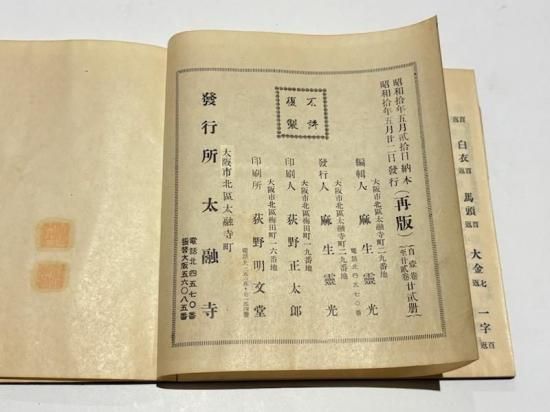 昭和拾年五月貳拾日納本
昭和拾年五月廿二日發行
（再版）
自壹卷
至廿貳卷
廿貳册
不許
復製
大阪市北區太融寺町二九番地
編輯人 麻生靈光
電話北四五七〇番
大阪市北區太融寺町二九番地
發行人 麻生靈光
大阪市北區梅田町一九番地
印刷人 荻野正太郎
大阪市北區梅田町一六番地
印刷所 荻野明文堂
大阪市北區太融寺町
發行所 太融寺
電話北四五七〇番
振替大阪五六〇八五番
百返
白衣 百返
馬頭 百返
大金 七返
一字 百返